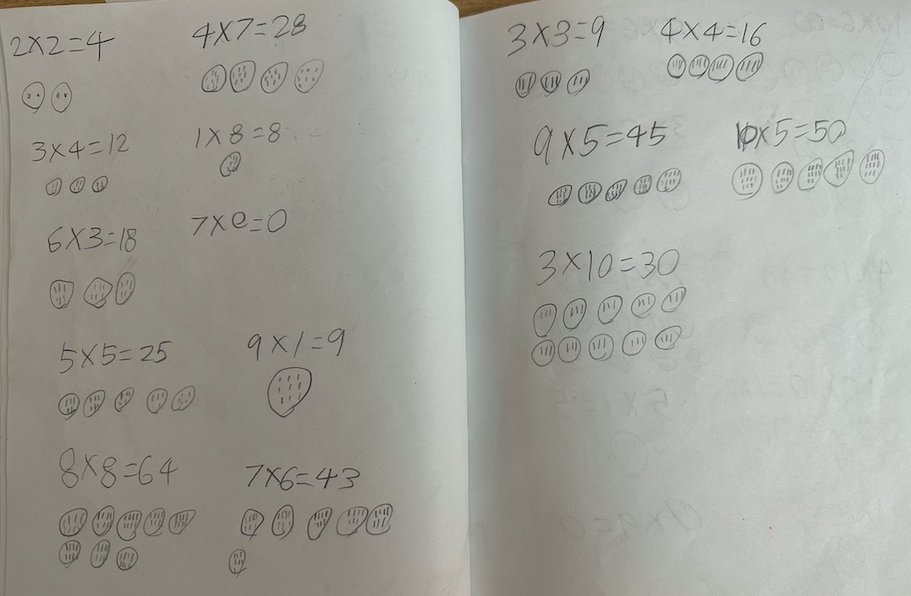 2×2=4 4×7=28
3×4=12 1×8=8
6×3=18 7×0=0
5×5=25 9×1=9
8×8=64 7×6=43
3×3=9 4×4=16
9×5=45 10×5=50
3×10=30